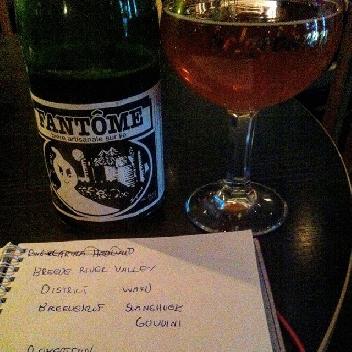 FANTÔME
bière artisanale sur lie
BREEDE RIVER VALLEY
DISTRICT WARD
BREEDEKLOOF SLANGHOEK
GOUDINI